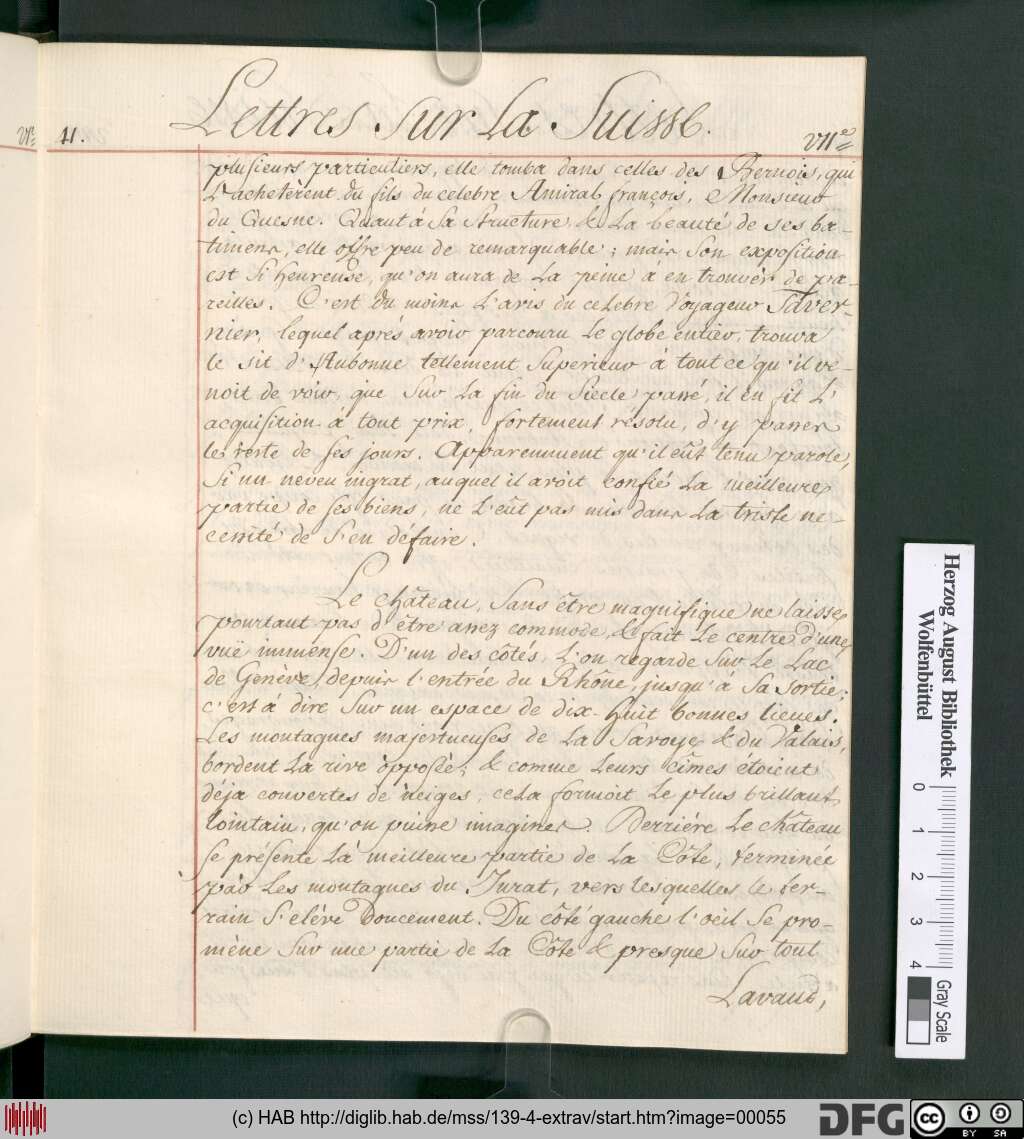 Lettres sur La Suisse.
VI.e 41. VII.e
plusieurs particuliers, elle tomba dans celles des Bernois, qui
L'achetèrent du fils du celebre Amiral françois, Monsieur
du Quesne. Quant á sa structure, & La beauté de ses ba-
timens, elle offre peu de remarquable; mais son exposition
est si heureuse, qu'on aura de La peine a en trouver de pa-
reilles. C'est du moins L'avis du celebre Voyageur Taver-
nier, lequel aprés avoir parcouru Le globe entier, trouva
le sit d'Aubonne tellement superieur á tout ce qu'il ve-
noit de voir, que sur La fin du siecle passé, il en fit L'
acquisition á tout prix, fortement résolu, d'y passer
le reste de ses jours. Apparemment qu'il eût tenu parole,
si un neveu ingrat, auquel il avoit confié La meilleure
partie de ses biens, ne L'eût pas mis dans La triste ne-
cessité de s'en défaire.
Le château, sans être magnifique ne laisse
pourtant pas d'être assez commode, & fait Le centre d'une
vuë immense. D'un des côtés, L'on regarde sur Le Lac
de Genève, depuis l'entrée du Rhône, jusqu'á sa sortie;
c'est á dire sur un espace de dix-huit bonnes lieues.
Les montagnes majestueuses de La Savoye & du Valais,
bordent La rive opposée; & comme Leurs cîmes étoient
déja couvertes de neiges, cela formoit Le plus brillant
lointain, qu'on puisse imaginer. Derriére Le château
se présente La meilleure partie de La Côte, terminée
par Les montagnes du Jurat, vers lesquelles le ter-
rain s'elève doucement. Du côté gauche l'oeil se pro-
mène sur une partie de La Côte & presque sur tout
Lavaux,
Herzog August Bibliothek
Wolfenbüttel
0 1 2 3 4
Gray Scale
(c) HAB http://diglib.hab.de/mss/139-4-extrav/start.htm?image=00055
DFG
cc BY SA